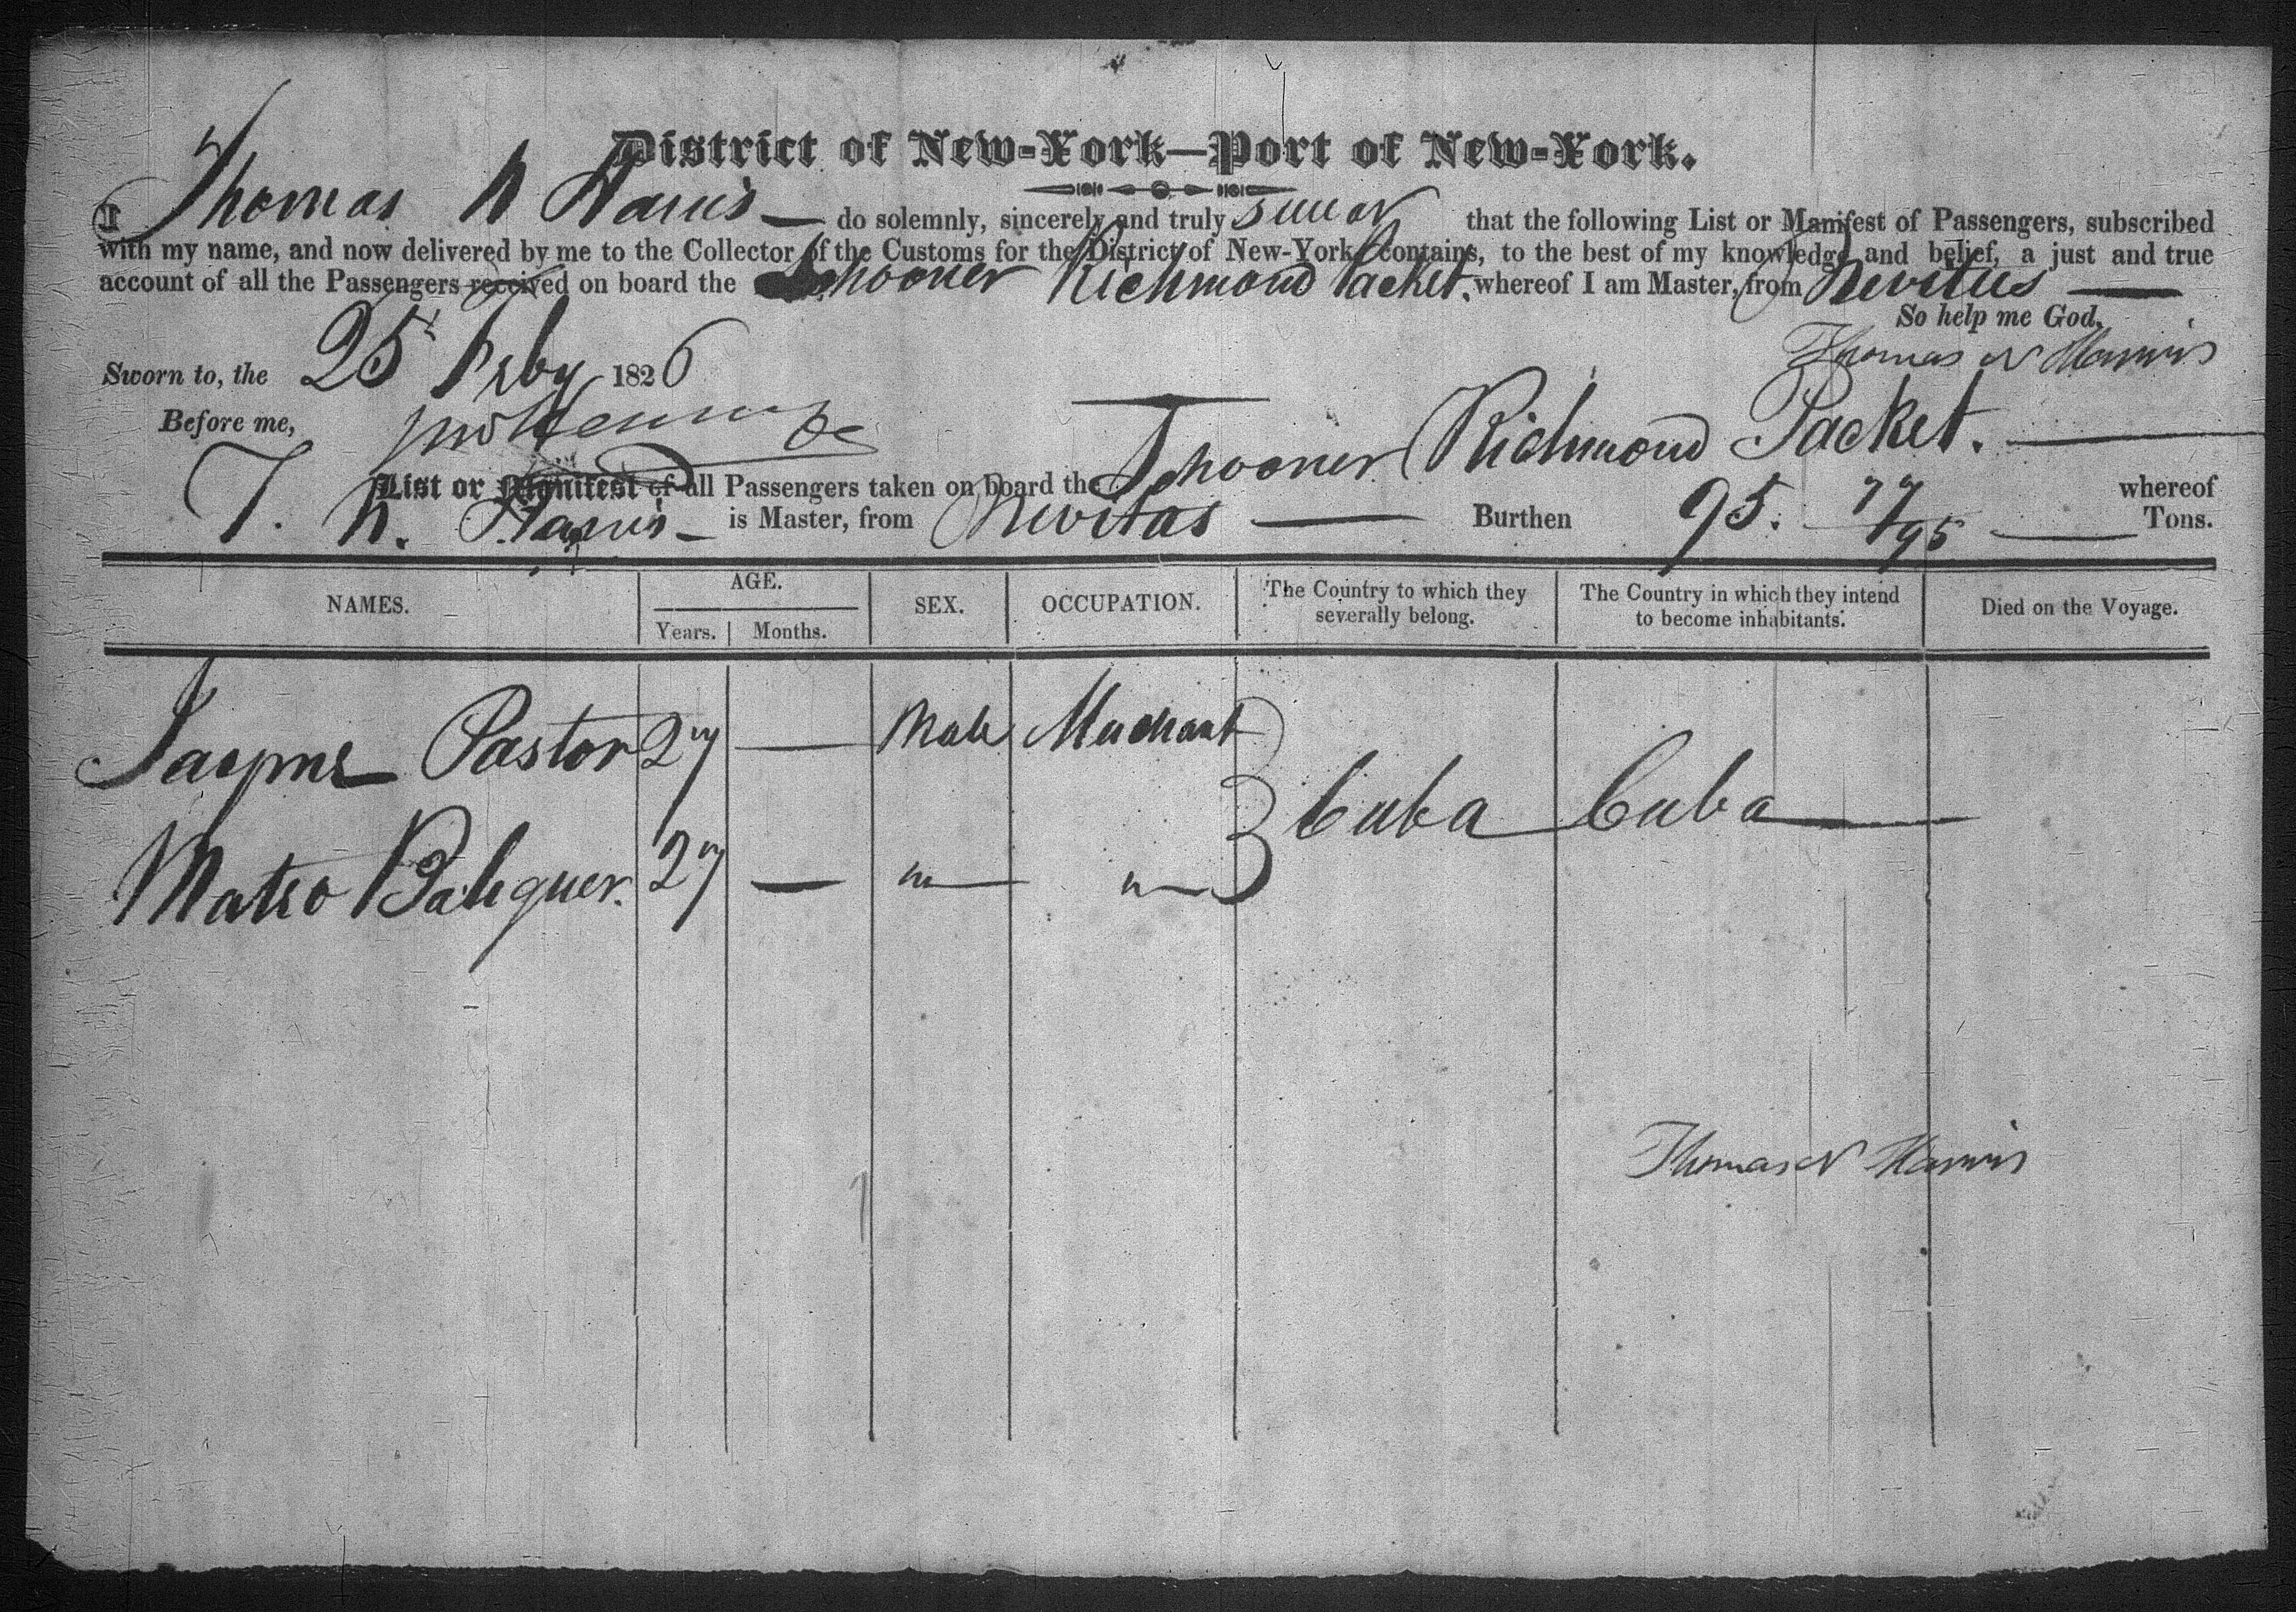 District of New-York—Port of New-York.
I Thomas N Harris — do solemnly, sincerely and truly swear that the following List or Manifest of Passengers, subscribed
with my name, and now delivered by me to the Collector of the Customs for the District of New-York, contains, to the best of my knowledge and belief, a just and true
account of all the Passengers received on board the Schooner Richmond Packet. whereof I am Master, from Nevitus —
So help me God.
Thomas N Harris
Sworn to, the 25 Feby 1826
Before me,
Schooner Richmond Packet. —
List or Manifest of all Passengers taken on board the whereof
T. N. Harris — is Master, from Nevitas — Burthen 95. 77/95 — Tons.
NAMES. AGE. SEX. OCCUPATION. The Country to which they severally belong. The Country in which they intend to become inhabitants. Died on the Voyage.
Years. Months.
Jayme Pastor 27 — Male Merchant
Cuba Cuba —
Mateo Baleguer. 27 — " — " —
Thomas N Harris